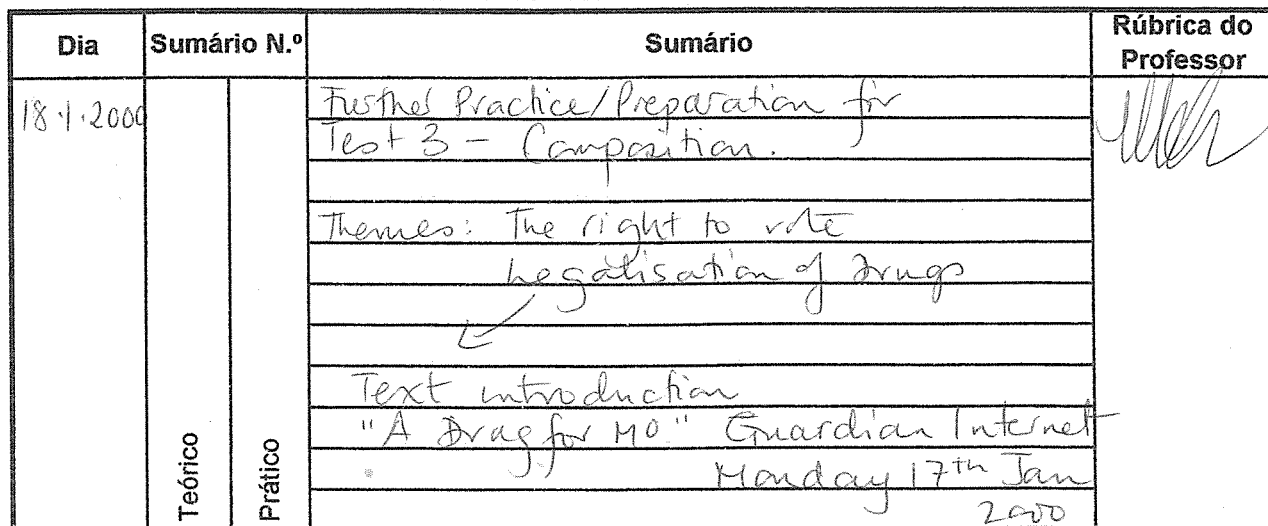 Dia Sumário N.º Sumário Rúbrica do Professor
18.1.2000 Further Practice/Preparation for
Test 3 - Composition.
Themes: The right to vote
Legalisation of Drugs
Text introduction
"A Drag for MO" Guardian Internet
Monday 17th Jan
2000
Teórico
Prático